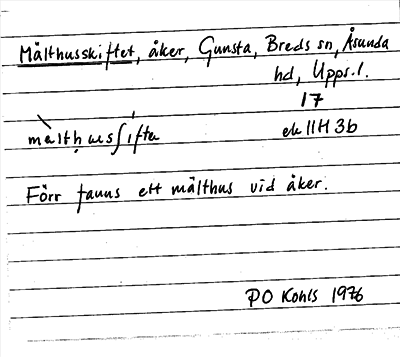 Mälthusskiftet, åker, Gunsta, Breds sn, Åsunda
hd, Upps. l.
17
màltḥusʃífta
ek 11H 3b
Förr fanns ett mälthus vid åker.
PO Kohls 1976